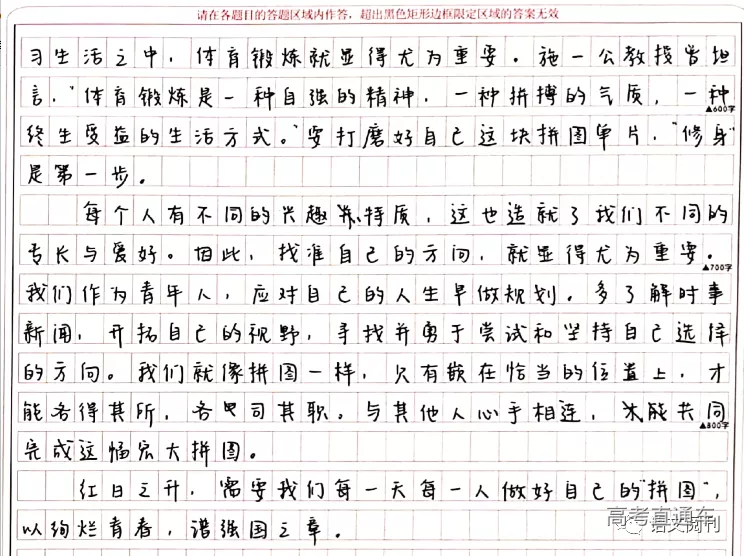 请在各题目的答题区域内作答，超出黑色矩形边框限定区域的答案无效
习生活之中，体育锻炼就显得尤为重要。施一公教授曾坦
言，“体育锻炼是一种自强的精神，一种拼搏的气质，一种
▲600字
终生受益的生活方式。”要打磨好自己这块拼图单片，“修身”
是第一步。
每个人有不同的兴趣特质，这也造就了我们不同的
专长与爱好。因此，找准自己的方向，就显得尤为重要。
▲700字
我们作为青年人，应对自己的人生早做规划。多了解时事
新闻，开拓自己的视野，寻找并勇于尝试和坚持自己选择
的方向。我们就像拼图一样，只有嵌在恰当的位置上，才
能各得其所，各司其职。与其他人心手相连，才能共同
▲800字
完成这幅宏大拼图。
红日之升，需要我们每一天每一人做好自己的“拼图”，
以绚烂青春，谱强国之章。
高考直通车
语文阅刊